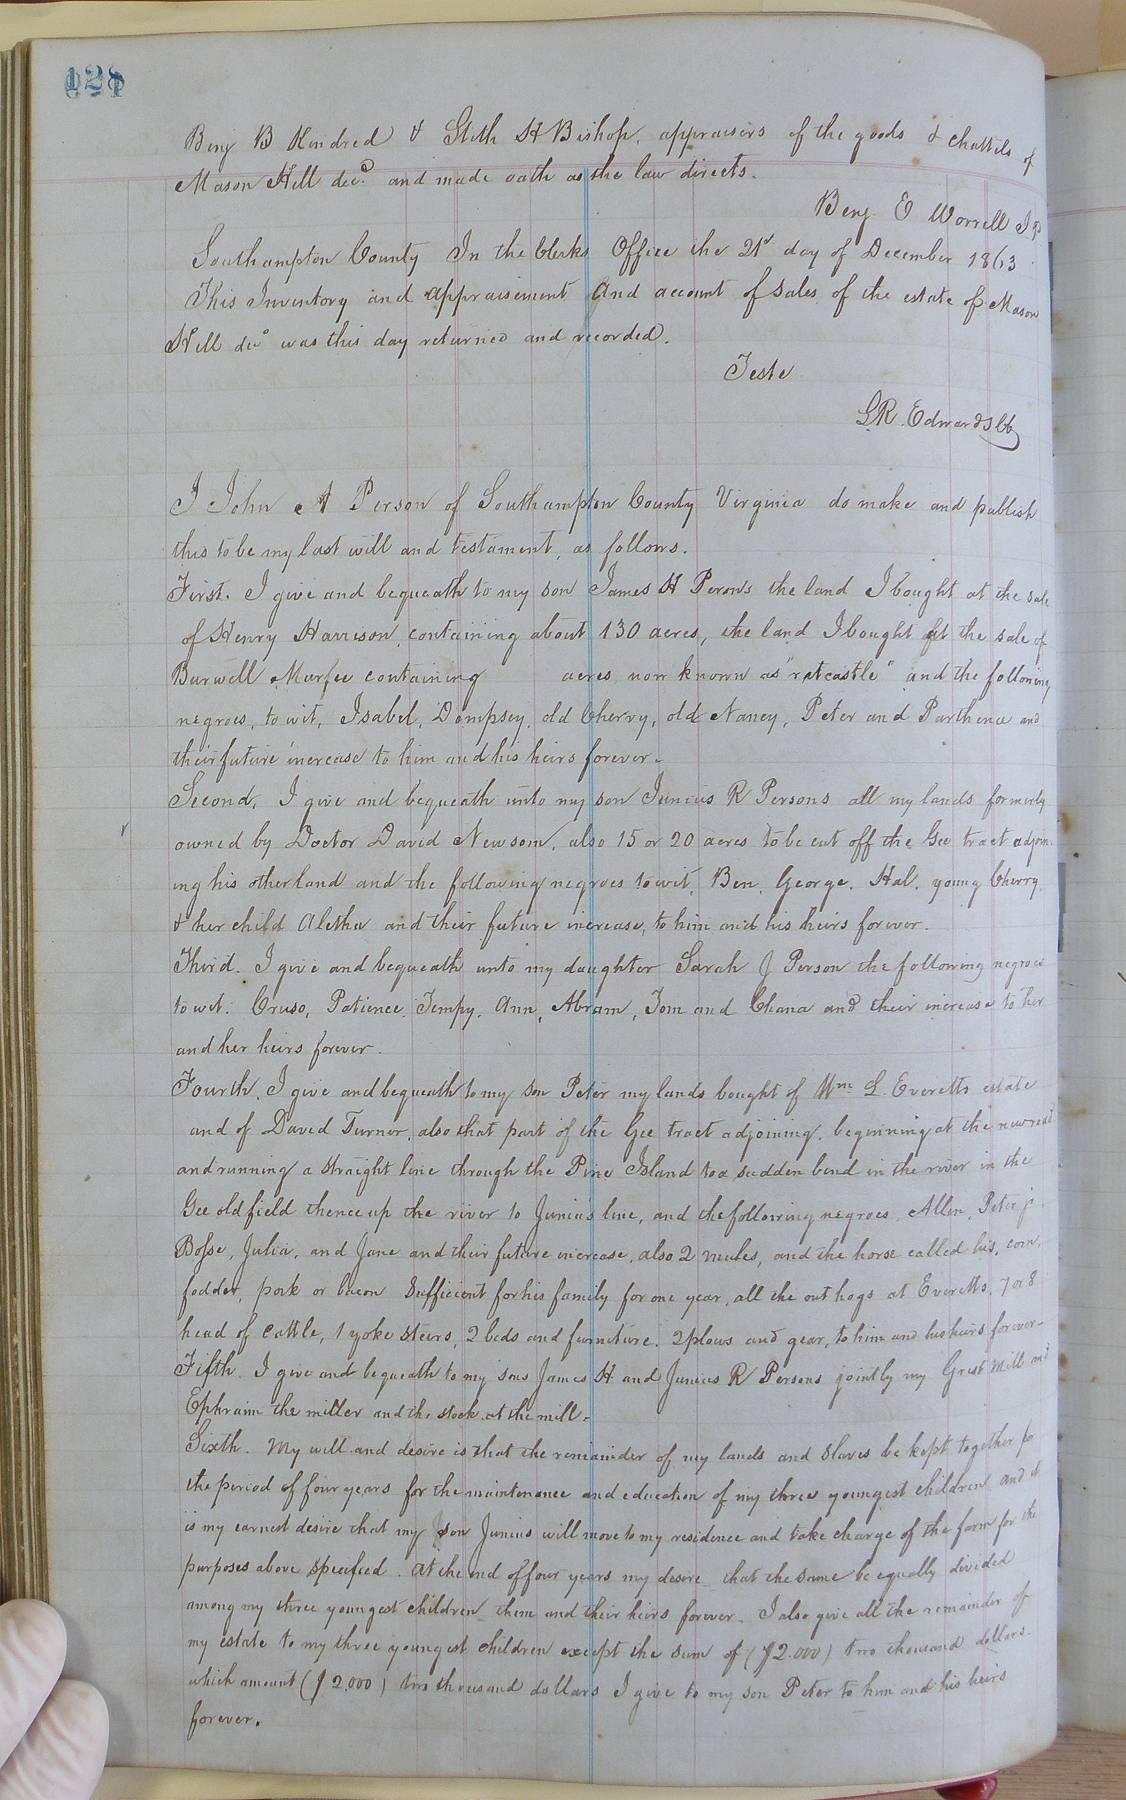 428
Benj B Kindred & Stith H Bishop, appraisers of the goods & chattels of
Mason Hill decd. and made oath as the law directs.
Benj E Worrell J P
Southampton County In the Clerks Office the 21st day of December 1863
This Inventory and appraisement And account of sales, of the estate of Mason
Hill decd was this day returned and recorded.
Teste
L R. Edwards Clk
I John A Person of Southampton County Virginia do make and publish
this to be my last will and testament, as follows.
First. I give and bequeath to my son James H Persons the land I bought at the sale
of Henry Harrison, containing about 130 acres, the land I bought at the sale of
Burwell Murfee containing acres now known as "ratcastle" and the following
negroes, to wit, Isabel, Dempsey, old Cherry, old Nancy, Peter and Parthena and
their future increase to him and his heirs forever.
Second, I give and bequeath unto my son Junius R Persons all my lands formerly
owned by Doctor David Newsom, also 15 or 20 acres to be cut off the Gee tract adjoin
ing his other land and the following negroes to wit, Ben, George, Hal, young Cherry
& her child Aletha and their future increase, to him and his heirs forever.
Third. I give and bequeath unto my daughter Sarah J Person the following negroes
to wit. Cruso, Patience, Tempy, Ann, Abram, Tom and Chana and their increase to her
and her heirs forever.
Fourth, I give and bequeath to my son Peter my lands bought of Wm L. Everetts estate
and of David Turner, also that part of the Gee tract adjoining, beginning at the new road
and running a straight line through the Pine Island to a sudden bend in the river in the
Gee old field thence up the river to Junius line, and the following negroes, Allen, Peter jr.
Bosse, Julia, and Jane and their future increase, also 2 mules, and the horse called his, corn,
fodder, pork or bacon sufficient for his family for one year, all the out hogs at Everetts, 7 or 8
head of cattle, 1 yoke steers, 2 beds and furniture, 2 plows and gear, to him and his heirs forever.
Fifth. I give and bequeath to my sons James H and Junius R Persons jointly my Grist Mill and
Ephraim the miller and the stock at the mill.
Sixth. My will and desire is that the remainder of my lands and slaves be kept together for
the period of four years for the maintenance and education of my three youngest children and it
is my earnest desire that my son Junius will move to my residence and take charge of the farm for the
purposes above specified. At the end of four years my desire that the same be equally divided
among my three youngest children them and their heirs forever. I also give all the remainder of
my estate to my three youngest children except the sum of ($2.000) two thousand dollars
which amount ($2.000) two thousand dollars I give to my son Peter to him and his heirs
forever.